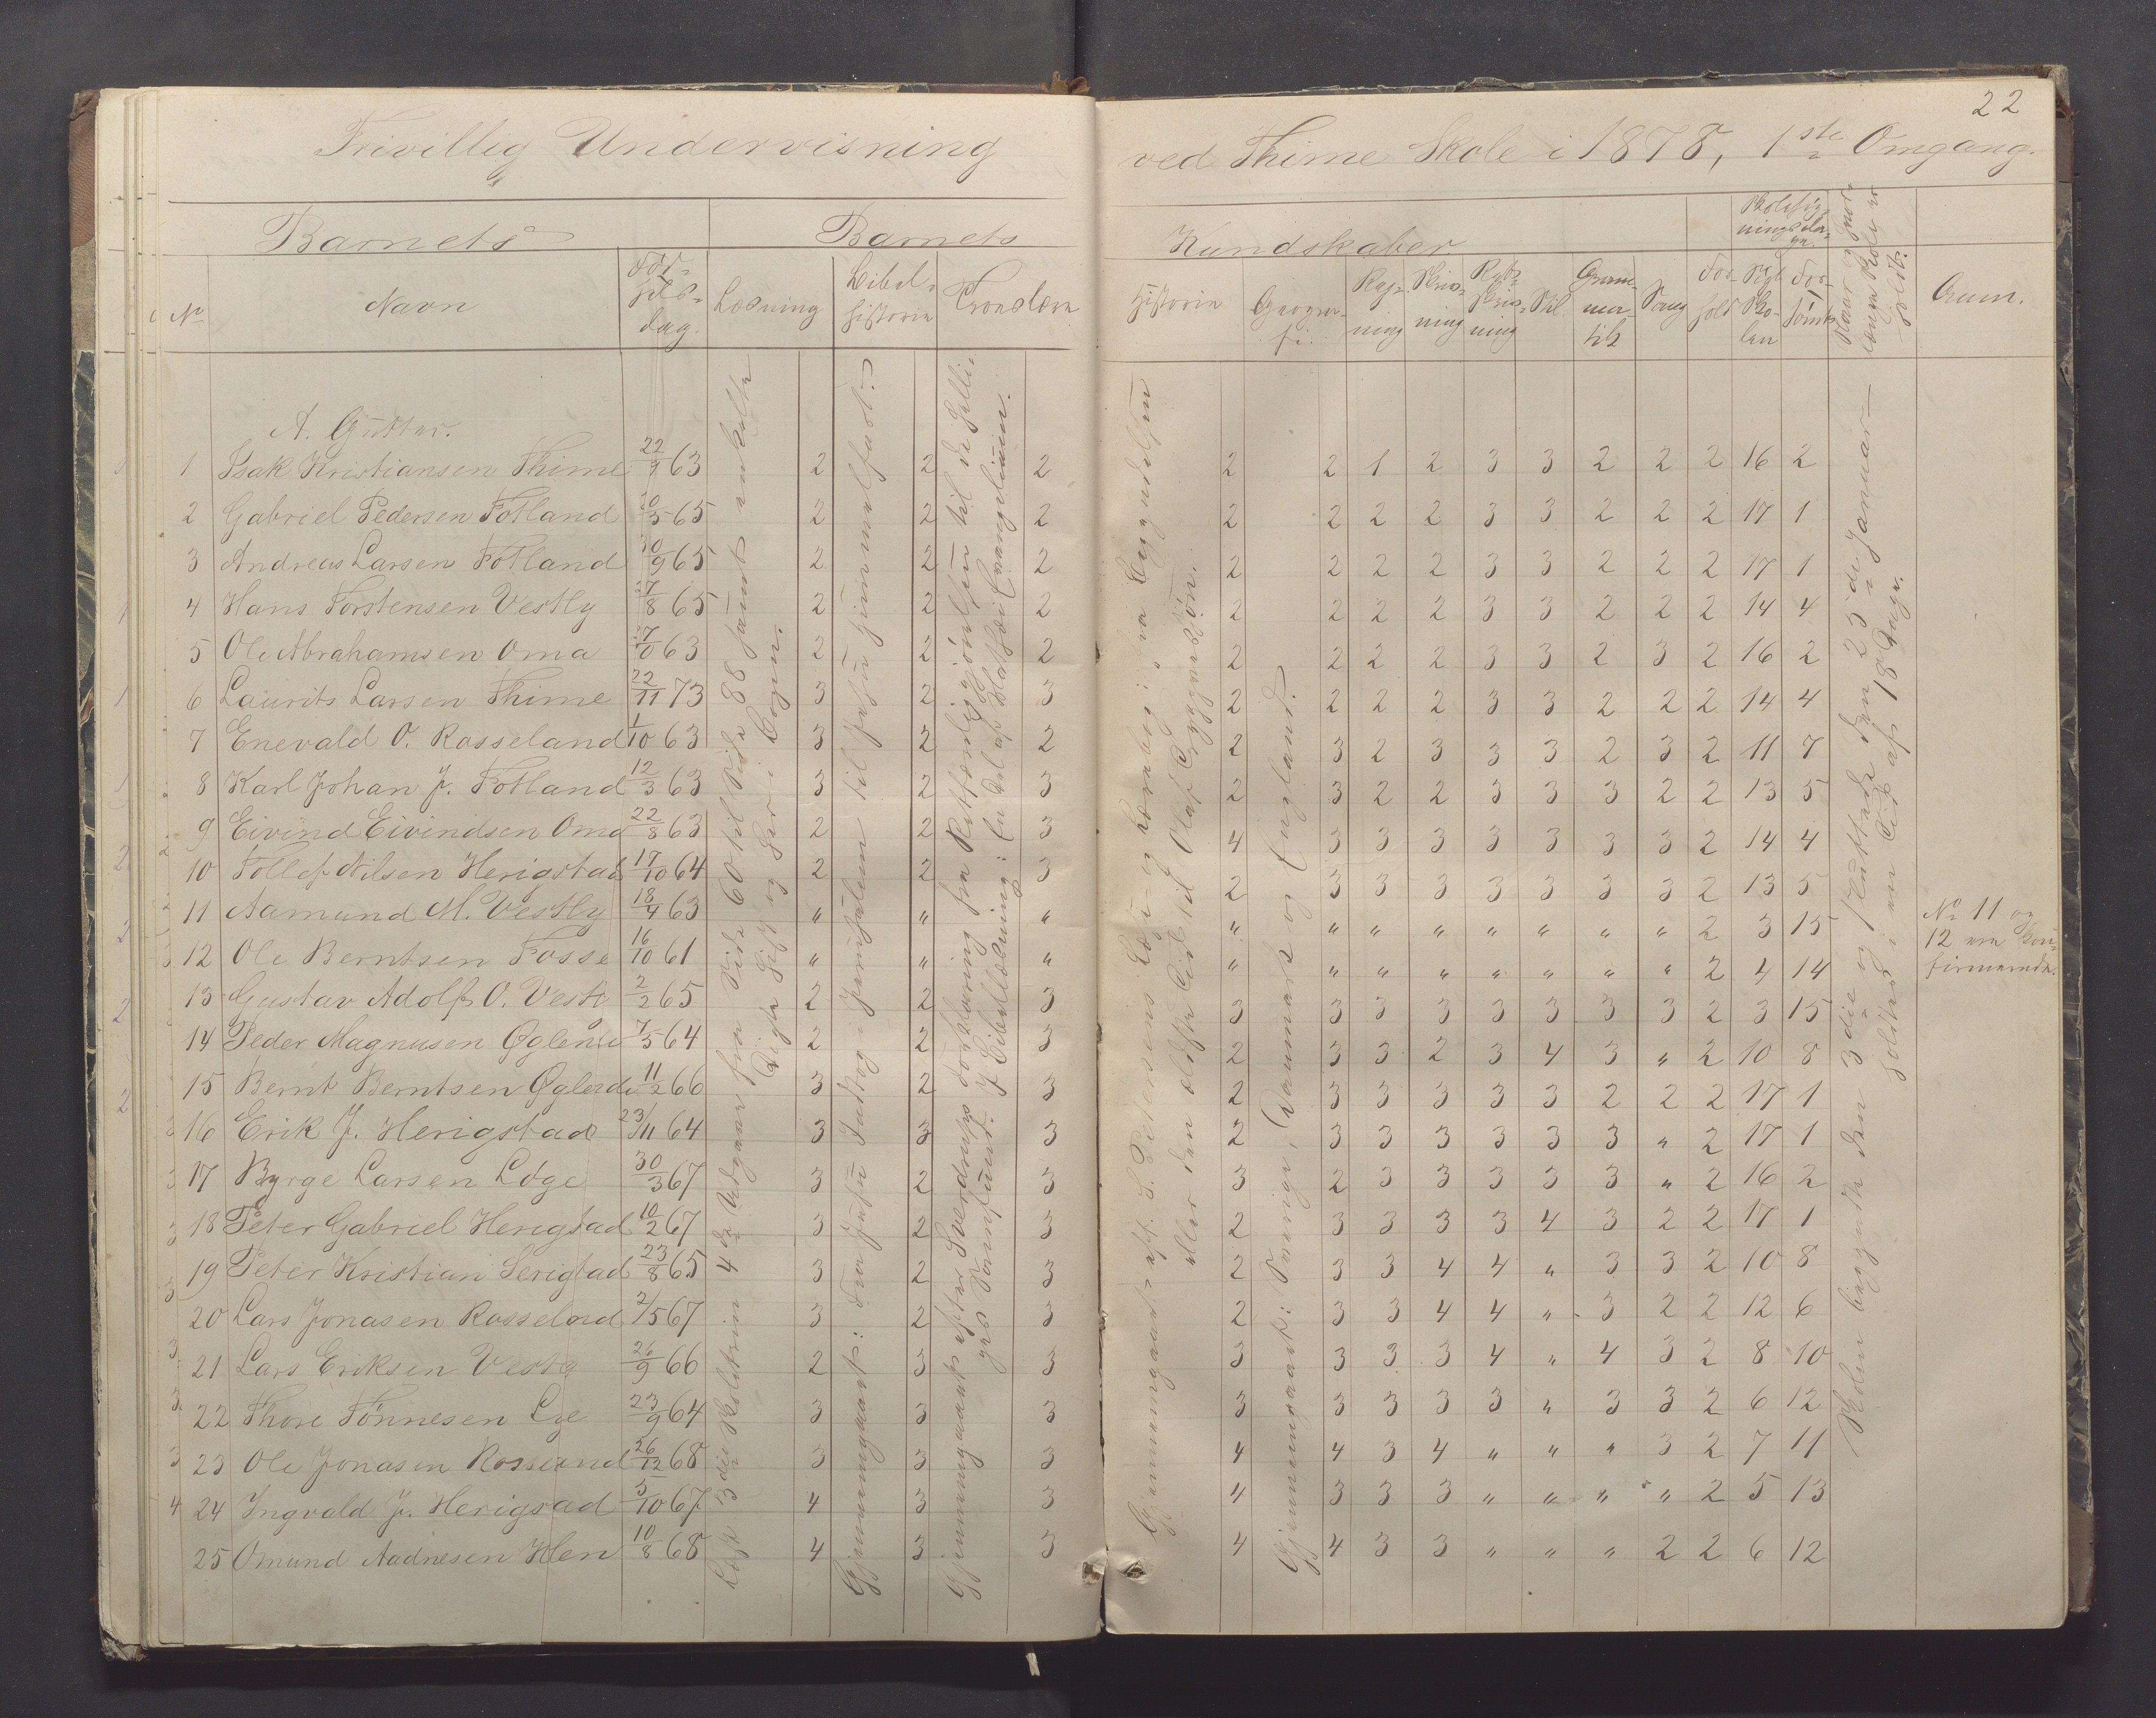 22
Frivillig Undervisning ved Thime Skole i 1878, 1ste Omgang.
Barnets Barnets Kundskaber
No Navn Fødselsdag. Læsning Bibelhistorie Troeslære Historie Geografi. Regning Skrivning Retskrivning Stil Grammatik Sang Forhold Skolesøgningsdage. Søgt Skolen Forsømt Naar og hvor længe Skole er holdt. Anm.
A. Gutter.
1 Isak Kristiansen Thime 22/9 63 2 2 2 2 2 1 2 3 3 2 2 2 16 2
2 Gabriel Pedersen Fotland 65 2 2 2 2 2 2 2 3 3 2 2 2 17 1
3 Andreas Larsen Fotland 65 2 2 2 2 2 2 2 3 3 2 2 2 17 1
4 Hans Torstensen Vestly 65 2 2 2 2 2 2 2 3 3 2 2 2 14 4
5 Ole Abrahamsen Oma 63 2 2 2 2 2 2 2 3 3 2 3 2 16 2
6 Laurits Larsen Thime 22/11 73 3 2 3 2 2 2 2 3 3 2 2 2 14 4
7 Enevald O. Rosseland 1/10 63 3 2 2 2 3 2 3 3 3 2 3 2 11 7
8 Karl Johan J. Fotland 12/3 63 3 2 3 2 3 2 2 3 3 3 2 2 13 5
9 Eivind Eivindsen Oma 22/8 63 2 2 3 4 3 3 3 3 3 3 3 2 14 4
10 Tollef Nilsen Herigstad 17/10 64 2 2 3 2 3 3 3 3 3 3 3 2 13 5
11 Aamund M. Vestly 18/4 63 " " " " " " " " " " " 2 3 15 No 11 og
12 Ole Berntsen Fosse 16/10 61 " " " " " " " " " " " 2 4 14 12 ere konfirmerede.
13 Gustav Adolf O. Vestl 2/2 65 2 2 3 3 3 3 3 3 3 3 3 2 3 15
14 Peder Magnusen Øglend 7/5 64 2 2 3 2 3 3 2 3 4 3 " 2 10 8
15 Bernt Berntsen Øglend 11/2 66 3 2 3 2 3 3 3 3 3 2 2 2 17 1
16 Erik J. Herigstad 23/11 64 3 3 3 2 3 3 3 3 3 3 " 2 17 1
17 Byrge Larsen Loge 30/3 67 3 2 3 3 2 3 3 3 3 3 " 2 16 2
18 Peter Gabriel Herigstad 10/2 67 3 2 3 2 3 3 3 3 4 3 2 2 17 1
19 Peter Kristian Serigtad 23/8 65 3 2 3 2 3 3 4 4 " 3 3 2 10 8
20 Lars Jonasen Rosseland 2/5 67 3 2 3 2 3 3 4 4 " 3 2 2 12 6
21 Lars Eriksen Vestly 26/9 66 2 3 3 3 3 3 3 4 " 4 3 2 8 10
22 Thore Tønnesen Lye 23/9 64 3 3 3 3 3 3 3 3 " 3 3 2 6 12
23 Ole Jonasen Rosseland 26/12 68 3 3 3 4 4 3 4 " " " 3 2 7 11
24 Ingvald J. Herigsad 5/10 67 4 3 3 4 3 3 3 " " " " 2 5 13
25 Omund Aadnesen Hlen 10/8 68 4 3 3 4 4 3 3 " " " 2 2 6 12
Læst 3die Skoletrin 4de Udgave fra Side 60 til Side 88 samt enkelte
Digte hist og her i Bogen.
Gjennemgaaet: Fra Jesu Indtog i Jerusalem til Jesu himmelfart.
Gjennemgaaet efter Sverdrups Forklaring fra Retfærdiggjørelsen til de hellige
Samfund. I Bibellæsning: En Del af Mathæi Evangelium.
Gjennemgaaet eft. S. Petersens Læse- og Lærebog: fra Begyndelsen
eller den ældste Tid til Olaf Tryggvesøn.
Gjennemgaaet: Sverige, Danmark og England.
Skolen begyndte den 3die og sluttede den 23de Januar —
holdtes i en Tid af 18 Dage.